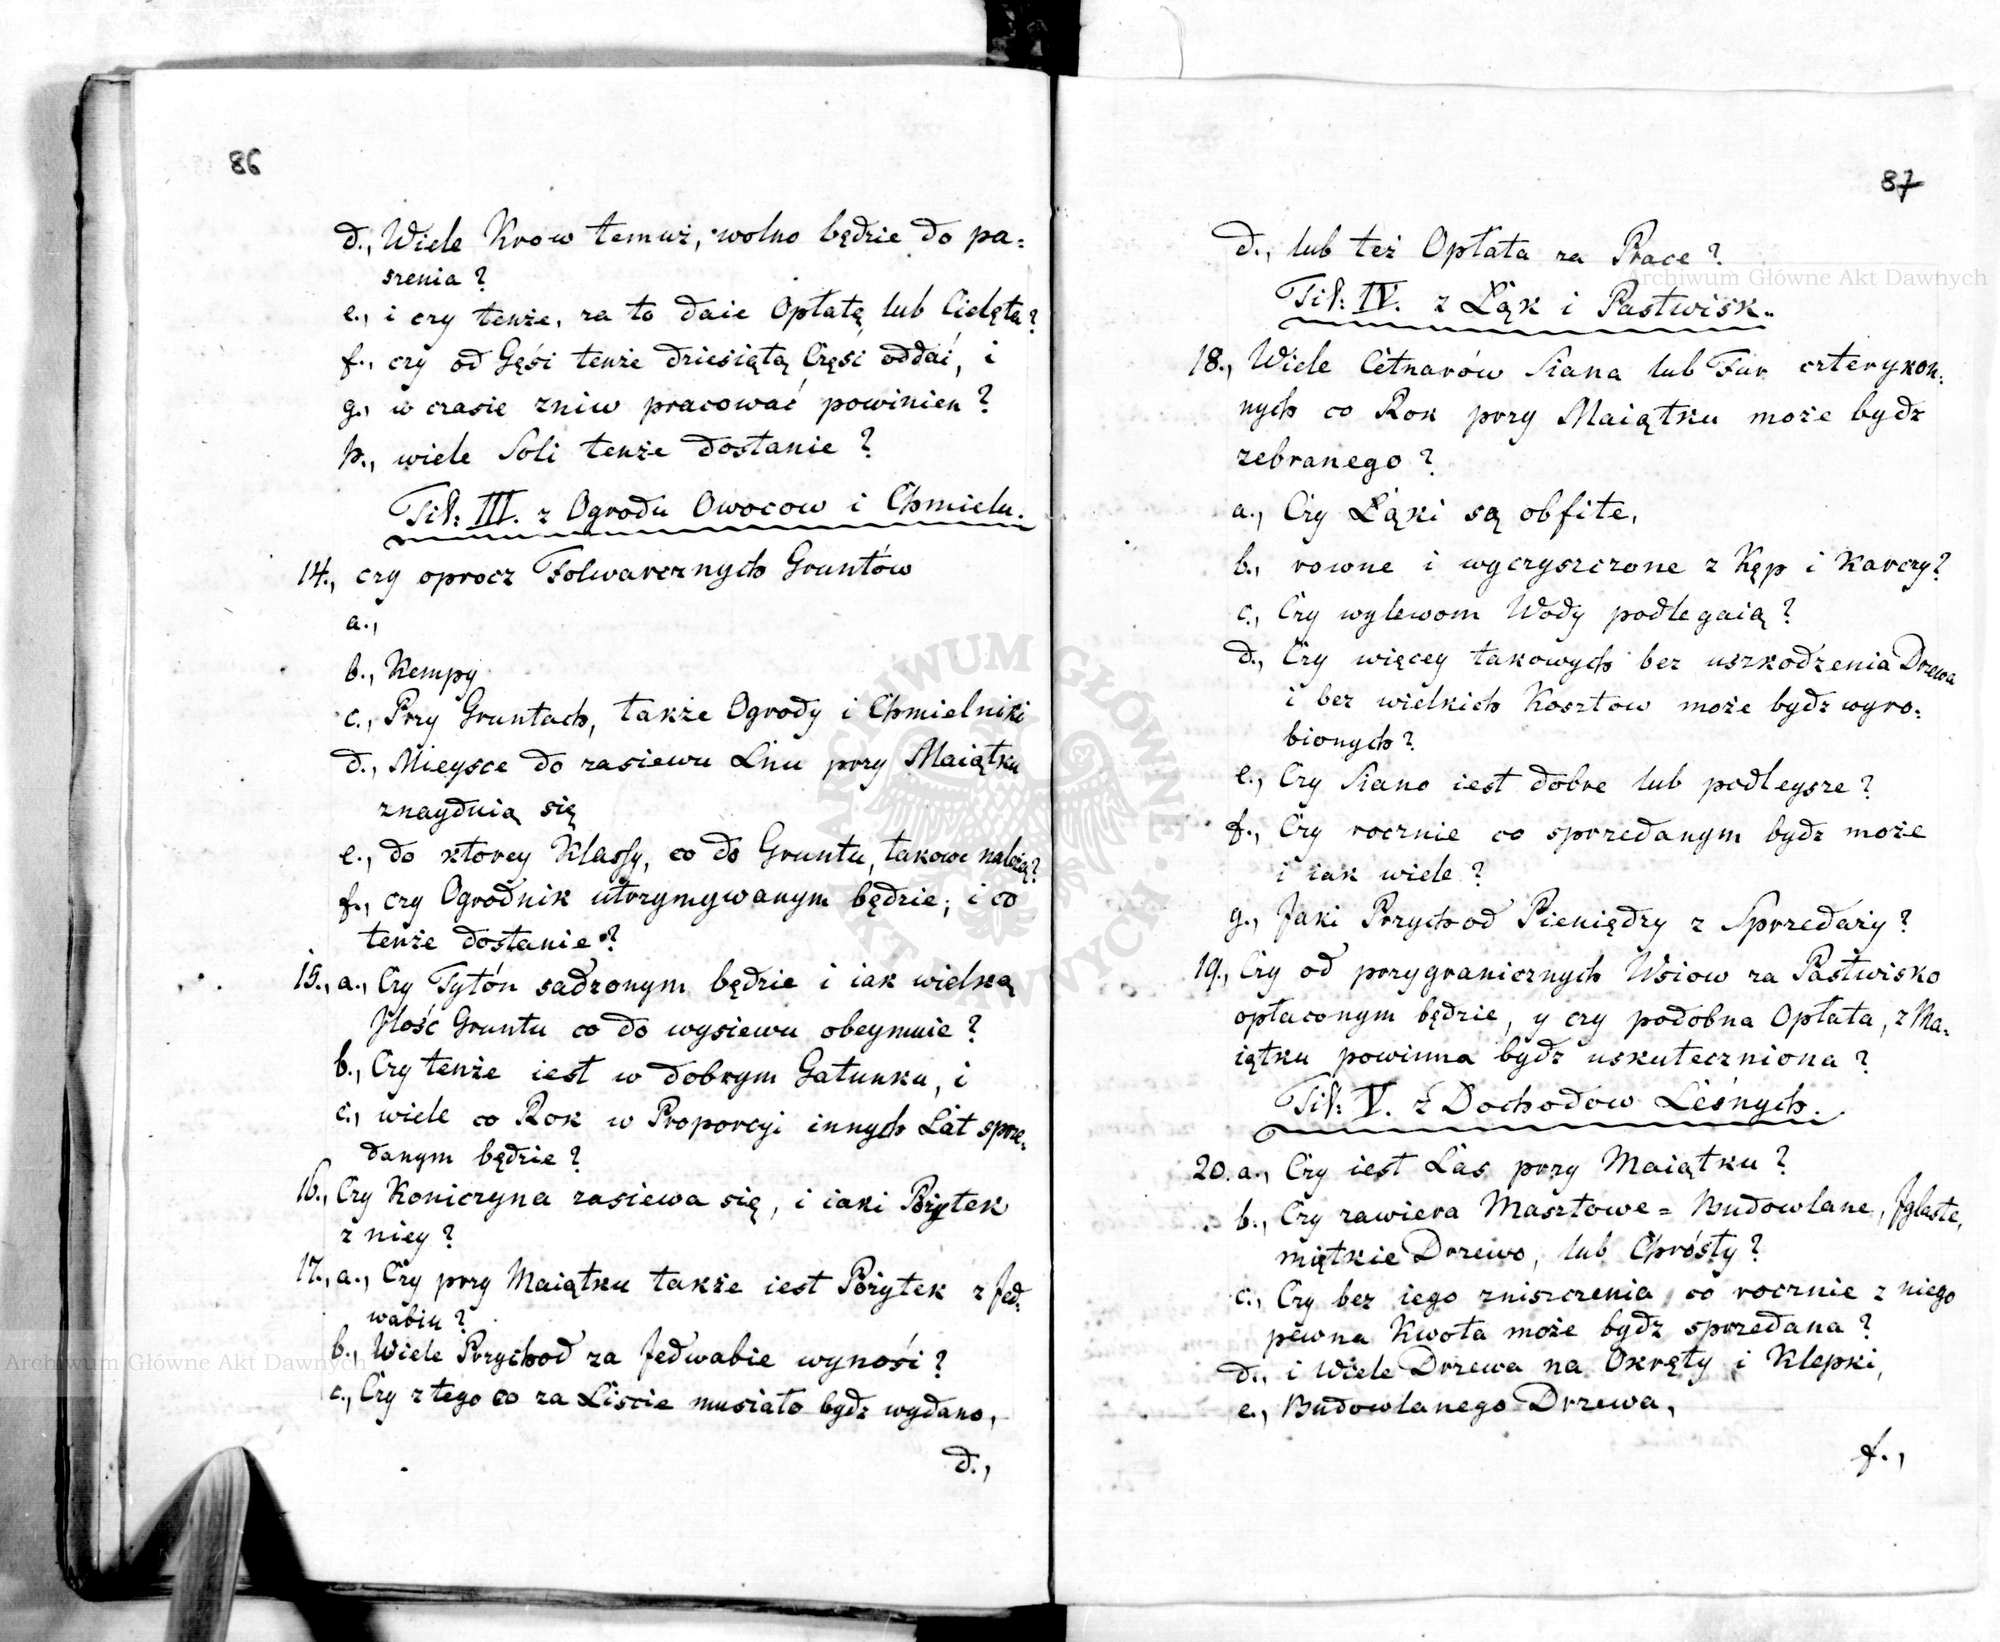 86
d., Wiele Krow temuż, wolno będzie do pa-
szenia?
e., i czy tenże, za to daie Opłatę lub Cielęta?
f., czy od Gęsi tenże dziesiątą Częsć oddać, i
g., w czasie zniw pracować powinien?
h., wiele Soli tenże dostanie?
Tit: III. z Ogrodu Owocow i Chmielu.
14., czy oprocz Folwarcznych Gruntów
a.,
b., Kempy
c., Przy Gruntach, także Ogrody i Chmielniki
d., Mieysce do zasiewu Lnu przy Maiątku
znayduią się
e., do ktorey Klassy, co do Gruntu, takowe należą?
f., czy Ogrodnik utrzymywanym będzie; i co
tenże dostanie?
15., a., Czy Tytóń sadzonym będzie i iak wielką
Jlość Gruntu co do wysiewu obeymuie?
b., Czy tenże iest w dobrym Gatunku, i
c., wiele co Rok w Proporcyi innych Lat sprze-
danym będzie?
16., Czy Koniczyna zasiewa się, i iaki Pożytek
z niey?
17., a., Czy przy Maiątku także iest Pożytek z Jed-
wabiu?
b., Wiele Przychod za Jedwabie wynośi?
c., Czy z tego co za Liscie musiało bydz wydano,
d.,
87
d., lub też Opłata za Prace?
Tit: IV. z Łąk i Pastwisk.
18., Wiele Cetnarów Siana lub Fur czterykon-
nych co Rok przy Maiątku może bydz
zebranego?
a., Czy Łąki są obfite,
b., rowne i wyczyszczone z Kęp i Karczy?
c., Czy wylewom Wody podlegaią?
d., Czy więcey takowych bez uszkodzenia Drzewa
i bez wielkich Kosztow może bydz wyro-
bionych?
e., Czy Siano iest dobre lub podleysze?
f., Czy rocznie co sprzedanym bydz może
i iak wiele?
g., Jaki Przychod Pieniędzy z Sprzedaży?
19., Czy od przygranicznych Wsiow za Pastwisko
opłaconym będzie, y czy podobna Opłata, z Ma-
iątku powinna bydz uskuteczniona?
Tit: V. z Dochodow Leśnych.
20. a., Czy iest Las przy Maiątku?
b., Czy zawiera Masztowe = Budowlane, Jglaste,
miętkie Drzewo, lub Chrósty?
c., Czy bez iego zniszczenia co rocznie z niego
pewna Kwota może bydz sprzedana?
d., i Wiele Drzewa na Okręty i Klepki,
e., Budowlanego Drzewa,
f.,
Archiwum Główne Akt Dawnych
Archiwum Główne Akt Dawnych
ARCHIWUM GŁÓWNE AKT DAWNYCH